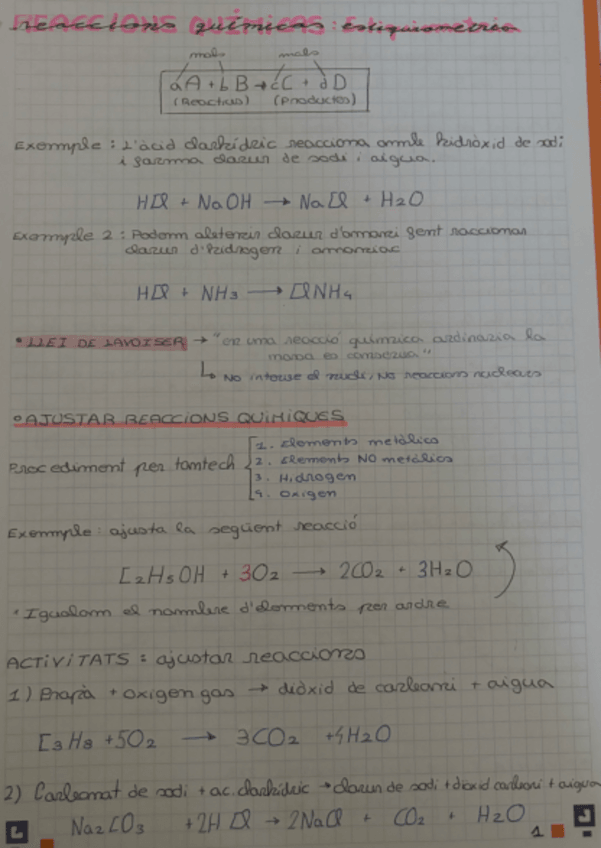 REACCIONS QUÍMICAS: Estiquiometria
mols mols
aA + bB → cC + dD
(Reactius) (Productes)
Exemple: L'àcid clorhídric reacciona amb hidròxid de sodi
i forma clorur de sodi i aigua.
HCl + NaOH → NaCl + H2O
Exemple 2: Podem obtenir clorur d'amoni fent reaccionar
clorur d'hidrogen i amoniac
HCl + NH3 → ClNH4
• LLEI DE LAVOISER → "en una reacció química ordinària la
massa es conserva"
↳ No intervé el nucli, No reaccions nuclears
• AJUSTAR REACCIONS QUÍMIQUES
Procediment per tantech
1. Elements metàlics
2. Elements NO metàlics
3. Hidrogen
4. Oxigen
Exemple: ajusta la següent reacció
C2H5OH + 3O2 → 2CO2 + 3H2O
• Igualam el nombre d'elements per ordre
ACTIVITATS: ajustar reaccions
1) Propà + oxigen gas → diòxid de carboni + aigua
C3H8 + 5O2 → 3CO2 + 4H2O
2) Carbonat de sodi + ac. clorhídric → clorur de sodi + dioxid carboni + aigua
Na2CO3 + 2HCl → 2NaCl + CO2 + H2O
1